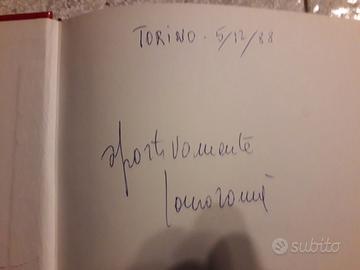 TORINO - 5/12/88
sportivamente
subito